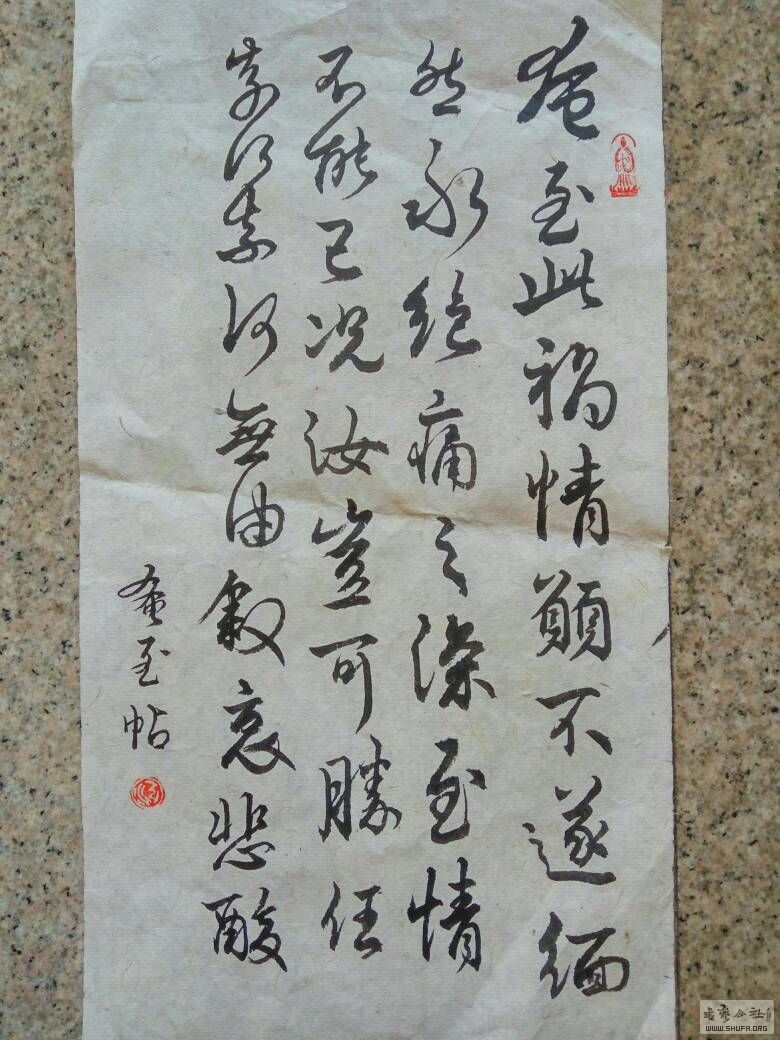 奄至此禍情願不遂緬
然永絕痛之深至情
不能已況汝豈可勝任
奈何奈何無由敘哀悲酸
奄至帖
书艺公社
WWW.SHUFA.ORG